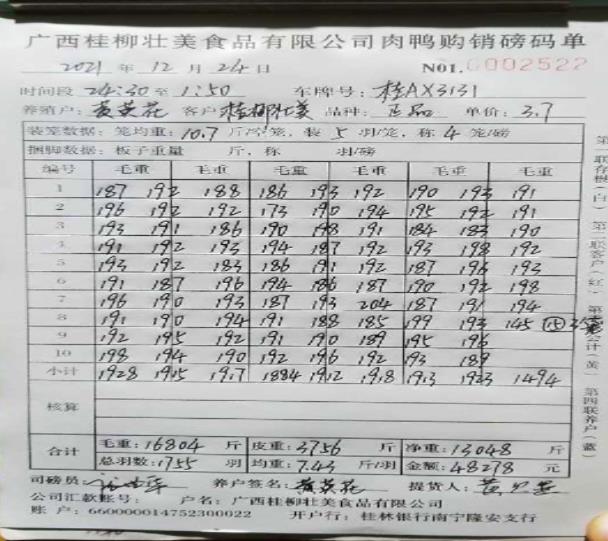 广西桂柳壮美食品有限公司肉鸭购销磅码单
2021 年 12 月 24 日 No1. 0002522
时间段 24:30 至 1:50 车牌号: 桂AX3131
养殖户: 黄英花 客户 桂柳壮美 品种: 正品 单价: 3.7
装笼数据: 笼均重: 10.7 斤/笼, 装 5 羽/笼, 称 4 笼/磅
捆脚数据: 板子重量 斤, 称 羽/磅
编号 毛重 毛重 毛重 毛重 毛重 毛重
1 187 192 188 186 193 192 190 193 191
2 196 192 192 173 190 194 195 192 191
3 193 191 186 190 198 191 184 183 190
4 191 192 193 194 187 192 193 198 192
5 193 192 183 186 191 192 187 196 193
6 191 187 196 194 186 187 190 192 198
7 196 190 193 187 193 204 187 191 194
8 191 190 194 191 188 185 199 193 145 ⑮
9 192 195 192 191 190 189 195 196
10 198 194 190 192 196 192 193 189
小计 1928 1915 1917 1884 1912 1918 1913 1923 1494
核算
合计 毛重: 16804 斤 皮重: 3756 斤 净重: 13048 斤
总羽数: 1755 羽 均重: 7.43 斤/羽 金额: 48278 元
司磅员: 养户签名: 黄英花 提货人: 黄
公司汇款账号: 户名: 广西桂柳壮美食品有限公司
账 户: 660000014752300022 开户行: 桂林银行南宁隆安支行
第一联存根(白) 第二联客户(红) 第三联会计(黄) 第四联养户(蓝)